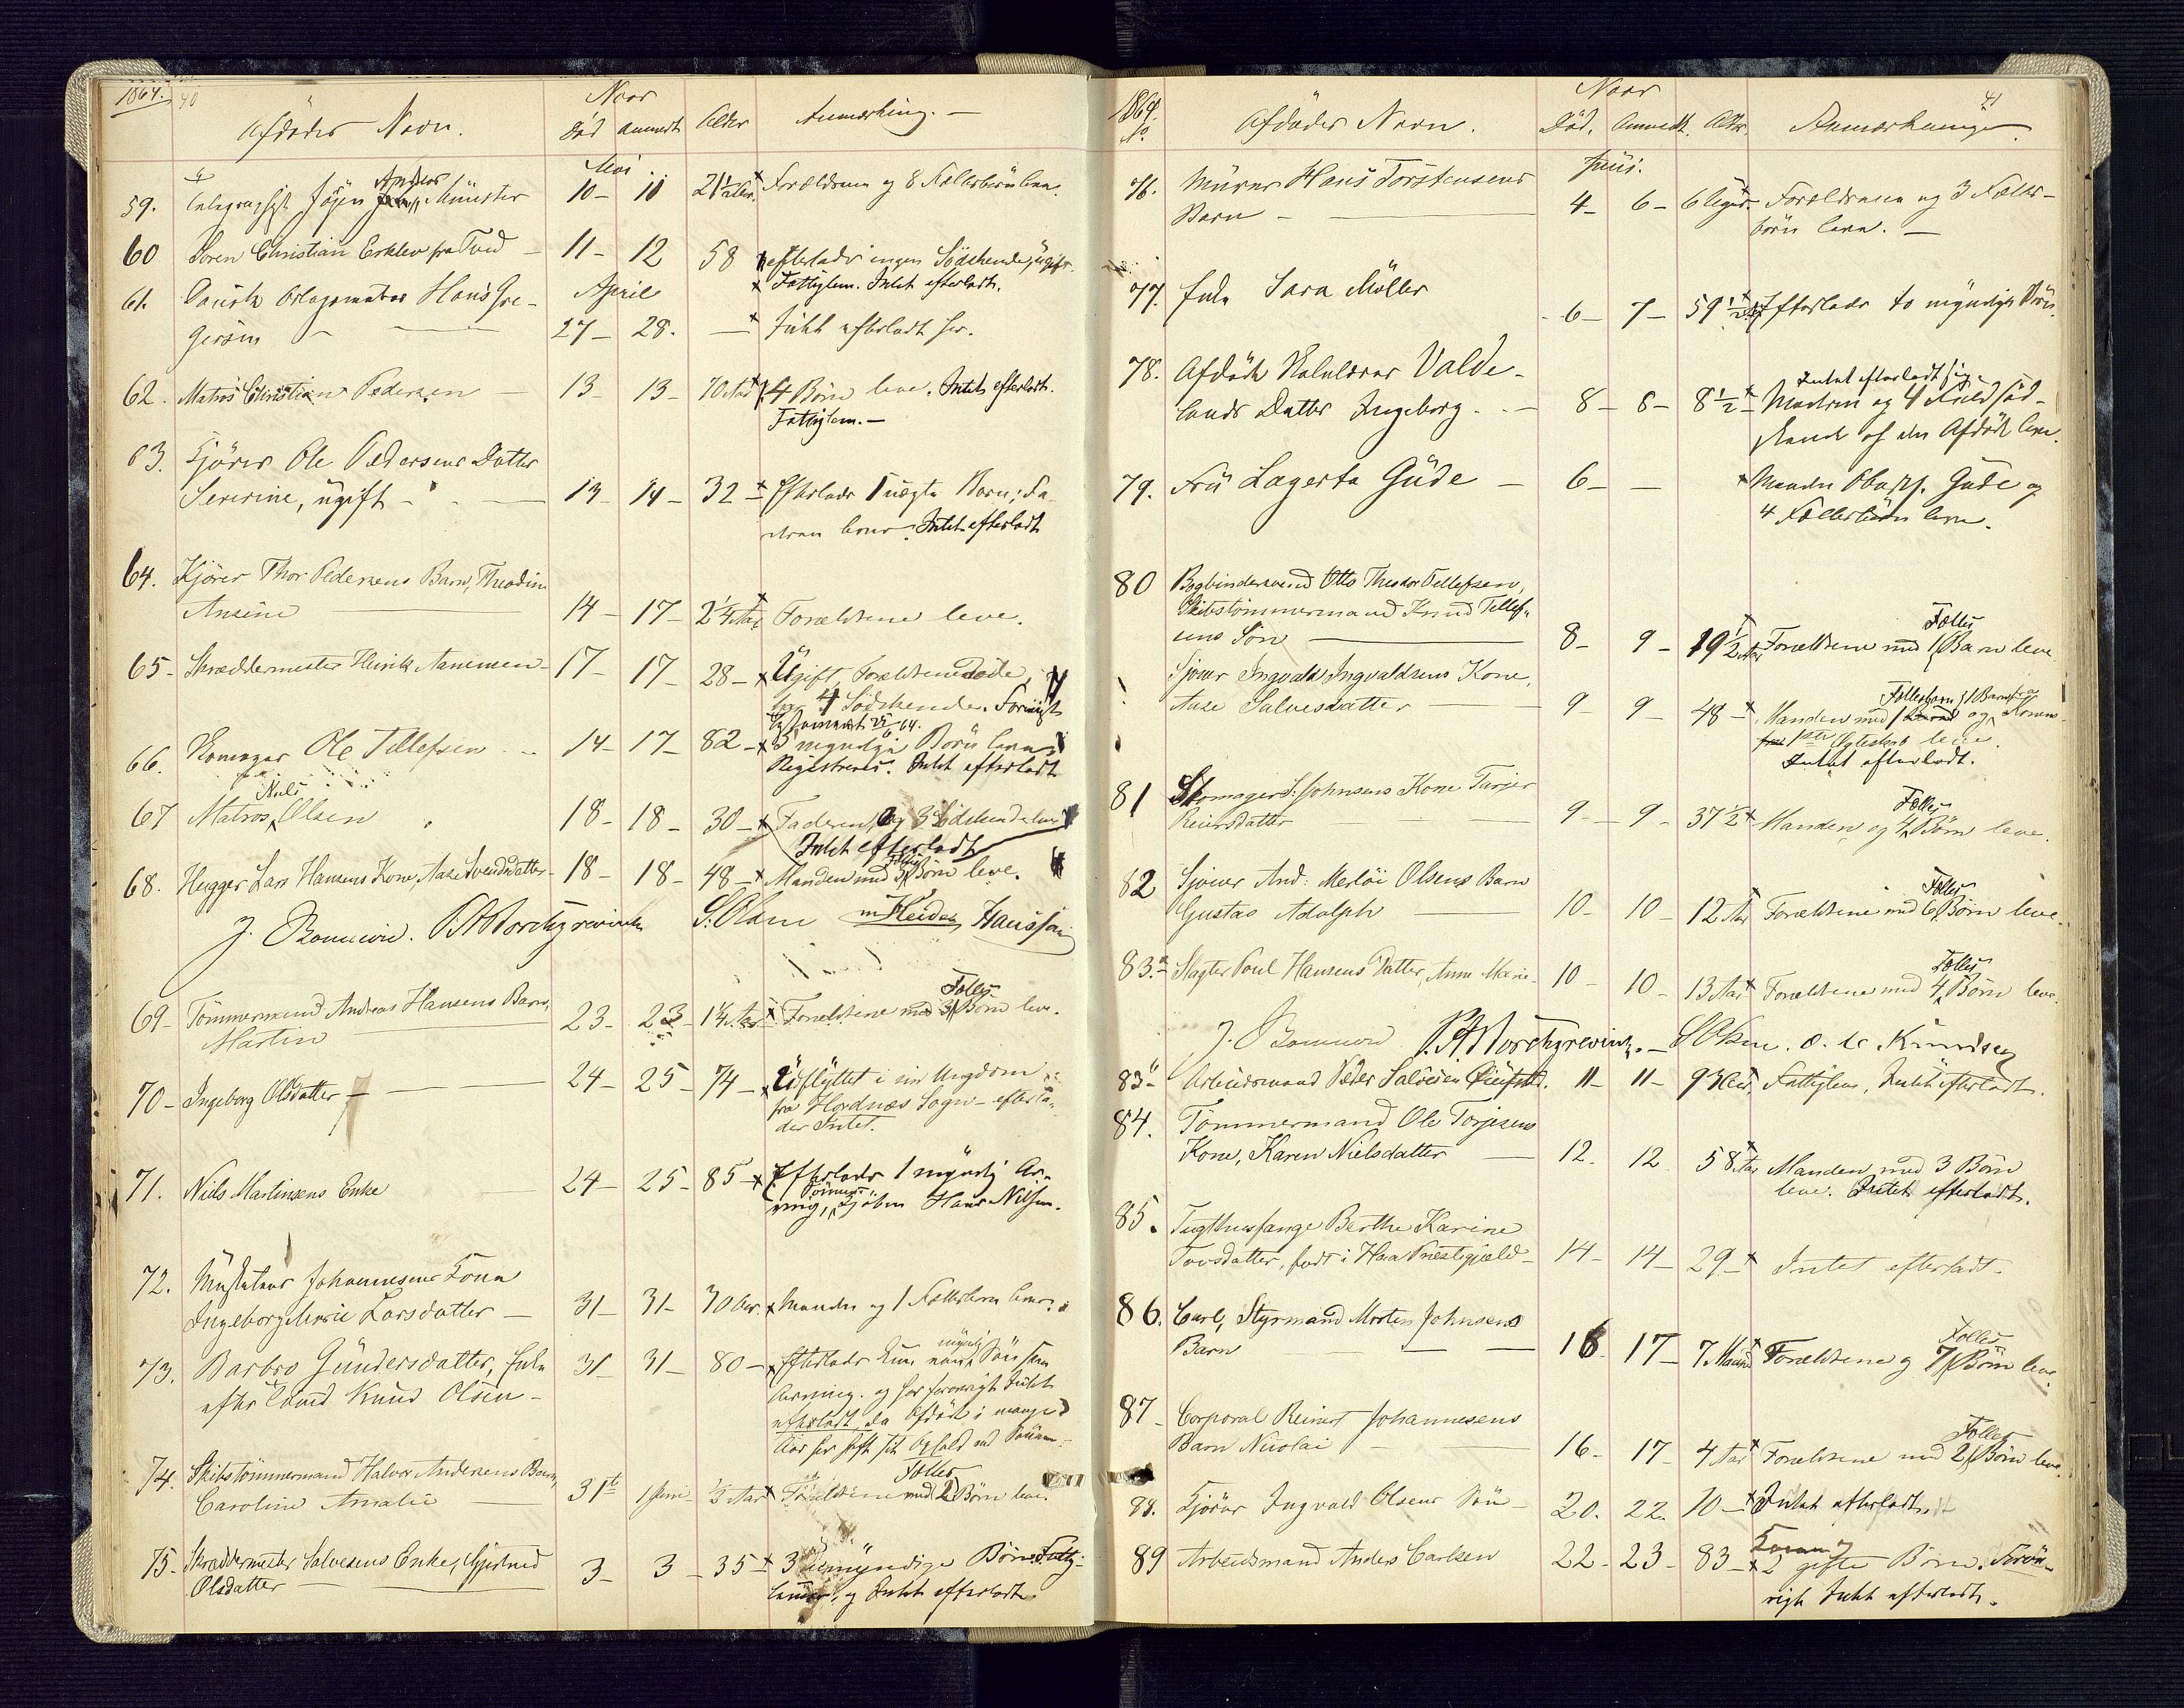 1864. 40
Naar
Afdødes Navn. Død Anmeldt Alder Anmærkning. —
Mai
59. Telegraphist Jörgen Anders Münster 10 - 11 21½ Aar. Forældrene og 8 Fællesbørn leve.
60 Søren Christian Erklev fra Tved - 11 - 12 58 efterlader ingen Södskende, ugift.
Fattiglem. Intet efterladt.
61. Dansk Orlogsmatros Hans Gre- April
gersen — 27 - 28. — Intet efterladt sig.
62. Matros Christian Pedersen — 13 - 13 - 70 Aar 4 Børn leve. Intet efterladt.
Fattiglem. —
63. Kjører Ole Pedersens Datter
Severine, ugift - 13 - 14 - 32 - Efterlader 1 uægte Barn; Fa-
deren lever. Intet efterladt
64. Kjörer Thor Pedersens Barn, Theodine
Ansine 14 - 17 - 2¼ Aar Forældrene leve.
65 - Skræddermester Henrik Aanensen - 17 - 17 - 28 - Ugift, Forældrene døde,
har 4 Södskende. Forevigt
Testament 25/6 64.
66. Ole Tellefsen - 14 - 17 - 82 - 3 myndige Børn leve.
Registreres. Intet efterladt
67 Matros Niels Olsen 18 - 18 - 30 - Faderen og 3 Södskende leve
Intet efterladt
68. Hugger Lars Hansens Kone, Aase Svendsdatter - 18 - 18 - 48 - Manden med 3 Fælles Børn leve.
J. Bonnevie. P. A. Borchgrevink S. Olsen m Heide Hanssen
69 - Tömmermand Andreas Hansens Barn,
Martin 23 - 23 - 1¼ Aar Forældrene med 3 Fælles Børn leve.
70 - Ingeborg Olsdatter — 24 - 25 - 74 - Udflyttet i sin Ungdom
fra Hordnæs Sogn - efterla-
der Intet.
71. Niels Martinsens Enke 24 - 25 - 85 - Efterlader 1 myndig Ar-
ving, Hans Nilsen.
72. Johannesens Kone
Ingeborg Marie Larsdatter — 31 - 31 - 70 Aar. Manden og 1 Fællesbarn lever.
73. Barbro Gundersdatter, Enke
efter Knud Olsen - 31 31 - 80 - Efterlader kun en myndig Søn som
Arving. og har forøvrigt Intet
efterladt, da Afdöde i mange
Aar har haft sit Ophold ved Sønnen.
74. Skibstömmermand Halvor Andersens Barn,
Caroline Amalie 31te 1 Juni - ½ Aar Forældrene med 2 Fælles Børn leve.
75 - Skræddermester Salvesens Enke, Gjertrud
Olsdatter 3 - 3 - 35 - 3 umyndige Børn. Fattig-
lem, og Intet efterladt
1864. 41
Naar
No. Afdødes Navn. Død. Anmeldt. Alder. Anmærkninger
Juni.
76. Murer Hans Torstensens
Barn - 4 - 6 - 6 Uger. Forældrene og 3 Fælles-
börn leve. —
77. Enke Sara Möller 6 - 7 - 59½ Efterlader to myndige Børn.
78. Afdøde Valde-
lands Datter Ingeborg. - 8 - 8 - 8½ Intet efterladt sig.
Moderen og 4 Heldsød-
skende af den Afdöde leve.
79. Fru Lagerta Gude — 6 - — Manden Gude og
4 Fællesbörn leve.
80 Bogbindersvend Otto Theodor Tellefsen,
Skibstömmermand Knud Tellef-
sens Sön 8 - 9 - 19½ Aar Forældrene med 1 Fælles Barn leve
Sjöver Ingvald Ingvaldsens Kone,
Aase Salvesdatter 9 - 9 - 48 - Manden med 1 Fællesbarn og 1 Barn fra Konens
1ste Ægteskab leve.
Intet efterladt.
81 Skomager S. Johnsens Kone Tarjer
Reiersdatter 9 - 9 - 37½ Manden og 4 Fælles Børn leve.
82 Sjöver And: Merlöi Olsens Barn
Gustav Adolph 10 - 10 - 12 Aar Forældrene med 6 Fælles Börn leve.
83.a Slagter Poul Hansens Datter, Anne Marie 10 - 10 - 13 Aar Forældrene med 4 Fælles Börn leve.
J. Bonnevie P. A. Borchgrevink. — S Olsen. O. Chr Knudsen
83b Arbeidsmand Peder Salvesen 11 - 11 - 93 Aar. Fattiglem, Intet efterladt.
84. Tömmermand Ole Torjesens
Kone, Karen Nielsdatter 12. 12 58 Aar Manden med 3 Børn
leve. Intet efterladt.
85. Tugthusfange Berthe Karine
Tovsdatter, født i Haa Præstegjæld - 14 - 14 - 29 - Intet efterladt.
86. Carl, Styrmand Morten Johnsens
Barn 16 - 17 - 7 Maaned Forældrene og 7 Fælles Börn leve.
87 - Corporal Reinert Johannesens
Barn Nicolai 16 - 17 - 4 Aar Forældrene med 2 Fælles Børn leve.
88. Kjörer Ingvald Olsens Sön - 20. 22. 10 - Intet efterladt.
89 Arbeidsmand Anders Carlsen 22 - 23 - 83 - Konen og
2 gifte Børn. Forøv-
rigt Intet efterladt.